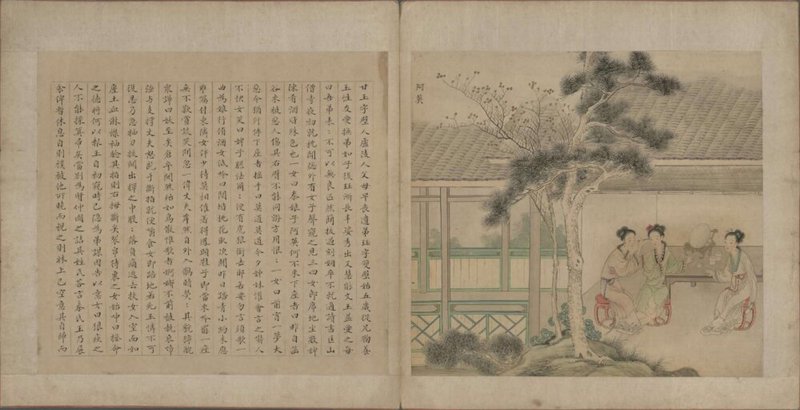 阿英
甘玉字璧人廬陵人父母早喪遺弟珏字雙璧始五歲從兄鞠養
玉性友愛撫弟如子後珏漸長丰姿秀出又慧能文玉益愛之每
曰吾弟表表不可以無良匹然簡拔過刻姻卒不就適讀書匡山
僧寺夜初就枕聞窗外有女子聲窺之見三四女郎席地坐數婢
陳肴酒皆殊色也一女曰秦娘子阿英何不來下座者曰昨自函
谷來被惡人傷其右臂不能同遊方用恨恨一女曰前宵一夢大
惡今猶汗悸下座者搖手曰莫道莫道今夕姊妹懽會言之嚇人
不快女笑曰婢子何膽怯爾爾便有虎狼銜去耶若要勿言須歌一
曲為娘行侑酒女低吟曰閒階桃花取次開昨日踏青小約未應
乖付囑東鄰女伴少待莫相催著得鳳頭鞋子即當來吟罷一座
無不歎賞談笑間忽一偉丈夫岸然自外入鶻睛熒熒其貌獰醜
眾啼曰妖至矣倉卒鬨然殆如鳥散惟歌者婀娜不前被執哀啼
強與支撐丈夫吼怒齕手斷指就便嚼食女郎踣地若死玉憐不可
復忍乃急抽劍拔關出揮之中股股落負痛逃去扶女入室面如
塵土血淋襟袖驗其指則右拇斷矣裂帛代裹之女始呻曰拯命
之德將何以報玉自初窺時已隱為弟謀因告以意女曰狼疾之
人不能操箕帚矣當別為賢仲圖之詰其姓氏答言秦氏玉乃展
衾俾暫休息自則襆被他所曉而視之則牀上已空意其自歸而